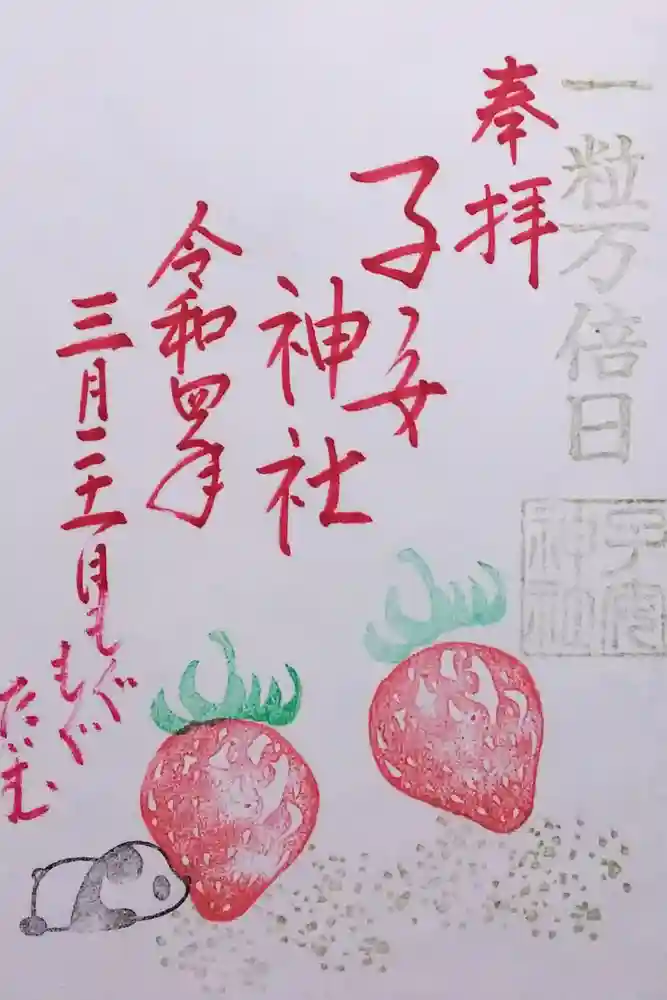 一粒万倍日
子安
神社
奉拝
子安
神社
令和四年
三月二十一日
もぐ
もぐ
たいむ